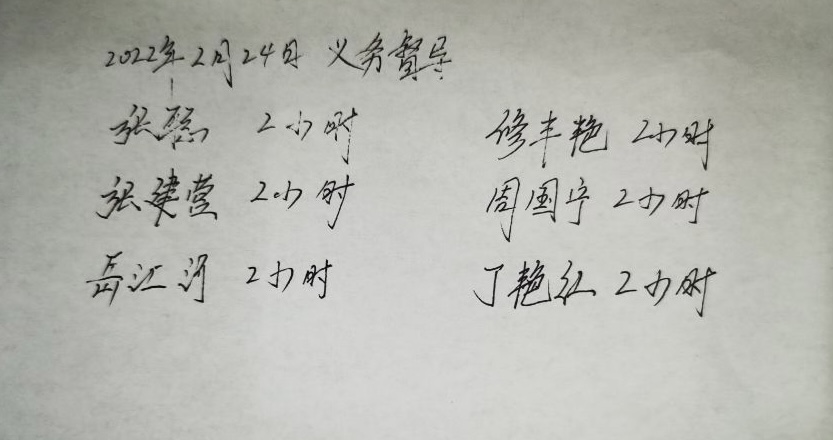 2022年2月24日 义务督导
张聪 2小时 修丰艳 2小时
张建营 2小时 周国宁 2小时
岳江河 2小时 丁艳红 2小时